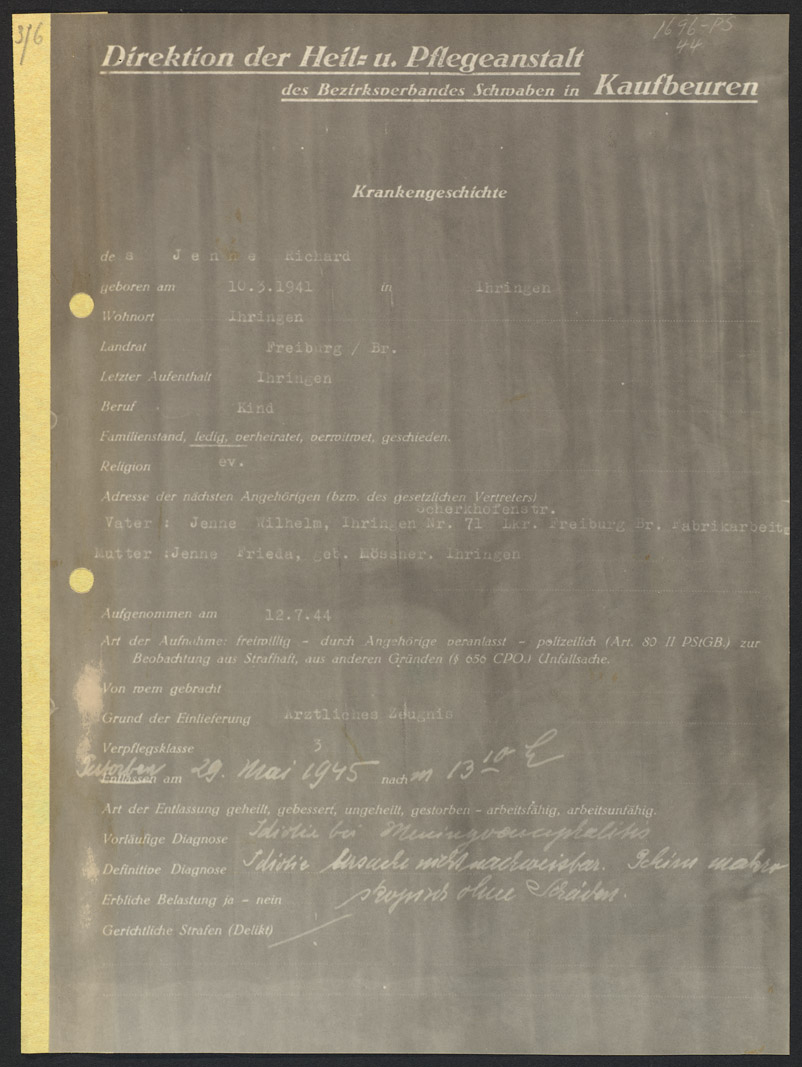 3/6
1696-PS
44
Direktion der Heil- u. Pflegeanstalt
des Bezirksverbandes Schwaben in Kaufbeuren
Krankengeschichte
des Jenne Richard
geboren am 10.3.1941 in Ihringen
Wohnort Ihringen
Landrat Freiburg / Br.
Letzter Aufenthalt Ihringen
Beruf Kind
Familienstand, ledig, verheiratet, verwitwet, geschieden.
Religion ev.
Adresse der nächsten Angehörigen (bzw. des gesetzlichen Vertreters)
Scherkhofenstr.
Vater : Jenne Wilhelm, Ihringen Nr. 71 Lkr. Freiburg Br. Fabrikarbeite
Mutter :Jenne Frieda, geb. Mössner. Ihringen
Aufgenommen am 12.7.44
Art der Aufnahme: freiwillig - durch Angehörige veranlasst - polizeilich (Art. 80 II PStGB.) zur
Beobachtung aus Strafhaft, aus anderen Gründen (§ 656 CPO.) Unfallsache.
Von wem gebracht
Grund der Einlieferung Ärztliches Zeugnis
Verpflegsklasse 3
Gestorben
Entlassen am 29. Mai 1945 nach um 13 10 h
Art der Entlassung geheilt, gebessert, ungeheilt, gestorben - arbeitsfähig, arbeitsunfähig.
Vorläufige Diagnose Idiotie bei Meningoencephalitis
Definitive Diagnose Idiotie Ursache nicht nachweisbar. Gehirn makro
skopisch ohne Schäden.
Erbliche Belastung ja - nein
Gerichtliche Strafen (Delikt)